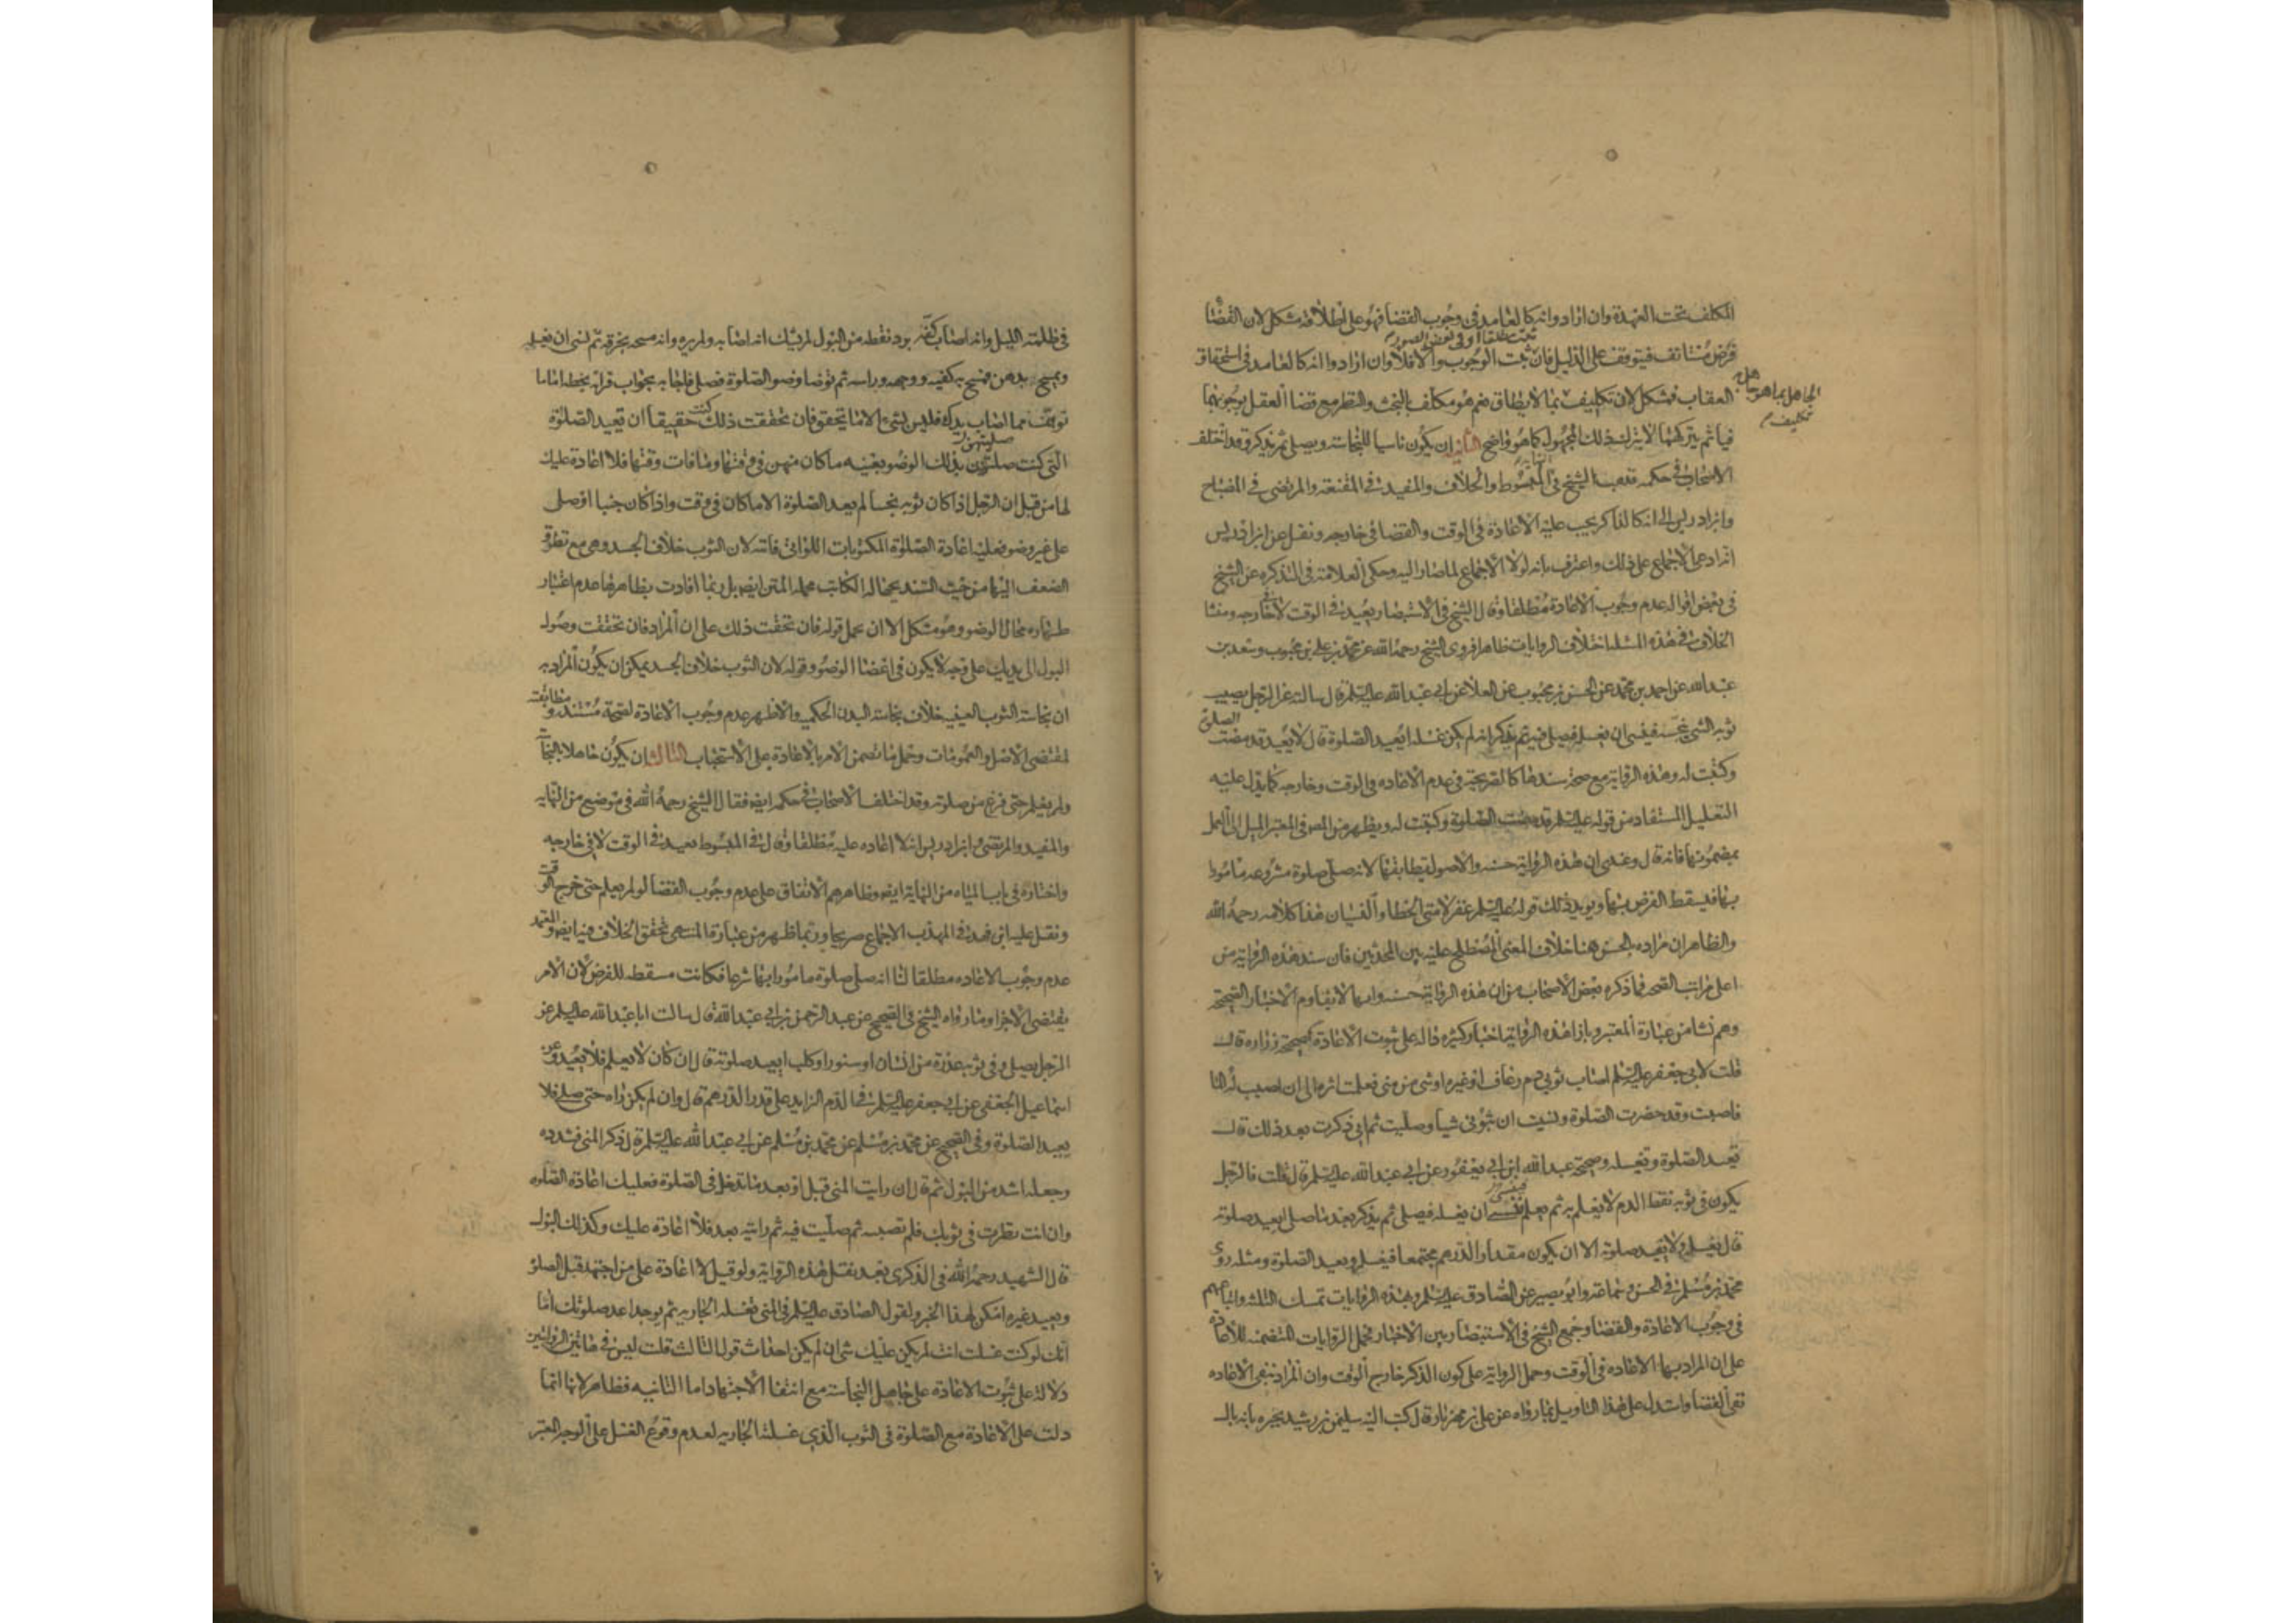 المكلف تحت العهدة وان ارادوا انه كالعامد في وجوب القضا فهو على اطلاقه مشكل لان القضا
ثبت مطلقا او في بعض الصور
فرض مستانف فيتوقف على الدليل فان ثبت الوجوب والا فلا وان ارادوا انه كالعامد في استحقاق
العقاب فمشكل لان تكليف بما لا يطاق نعم هو مكلف بالبحث والنظر مع قضا العقل بوجوبهما
الجاهل بما هو جاهل به تكليف
فياثم بتركهما لا بترك ذلك المجهول كما هو واضح الثاني ان يكون ناسيا للنجاسة ويصلي ثم يذكر وقد اختلف
الاصحاب في حكمه فذهب الشيخ في المبسوط والخلاف والمفيد في المقنعة والمرتضى في المصباح
وابن ادريس الى انه كالذاكر يجب عليه الاعادة في الوقت والقضا في خارجه ونقل عن ابن ادريس
انه ادعى الاجماع على ذلك واعترف بانه لولا الاجماع لما صار اليه وحكى العلامة في التذكرة عن الشيخ
في بعض اقواله عدم وجوب الاعادة مطلقا وقال الشيخ في الاستبصار يعيد في الوقت لا في خارجه ومنشا
الخلاف في هذه المسئلة اختلاف الروايات ظاهرا فروى الشيخ رحمه الله عن محمد بن علي بن محبوب وسعد بن
عبد الله عن احمد بن محمد عن الحسن بن محبوب عن العلا عن ابي عبد الله عليه السلم قال سالته عن الرجل يصيب
ثوبه الشي ينجسه فينسى ان يغسله فيصلي فيه ثم يذكر انه لم يكن غسله ايعيد الصلوة قال لا يعيد قد مضت الصلوة
وكتبت له وهذه الرواية مع صحة سندها كالصريحة في عدم الاعادة في الوقت وخارجه كما يدل عليه
التعليل المستفاد من قوله عليه السلم قد مضت الصلوة وكتبت له ويظهر من المص في المعتبر الميل الى العمل
بمضمونها فانه قال وعندي ان هذه الرواية حسنة والاصول يطابقها لانه صلى صلوة مشروعة مامورا
بها فيسقط الفرض بها ويويد ذلك قوله عليه السلم عفي لامتي الخطا والنسيان هذا كلامه رحمه الله
والظاهر ان مراده بالحسن هنا خلاف المعنى المصطلح عليه بين المحدثين فان سند هذه الرواية من
اعلى مراتب الصحة فما ذكره بعض الاصحاب من ان هذه الرواية حسنة وانها لا يقاوم الاخبار الصحيحة
وهم نشا من عبارة المعتبر وبازا هذه الرواية اخبار كثيرة دالة على ثبوت الاعادة كصحيحة زرارة قال
قلت لابي جعفر عليه السلم اصاب ثوبي دم رعاف او غيره او شي من مني فعلمت اثره الى ان اصيب له الما
فاصبت وقد حضرت الصلوة ونسيت ان بثوبي شيا وصليت ثم اني ذكرت بعد ذلك قال
تعيد الصلوة وتغسله وصحيحة عبد الله ابن ابي يعفور عن ابي عبد الله عليه السلم قال قلت فالرجل
يكون في ثوبه نقط الدم لا يعلم به ثم يعلم فينسى ان يغسله فيصلي ثم يذكر بعد ما صلى ايعيد صلوته
قال يغسله ولا يعيد صلوته الا ان يكون مقدار الدرهم مجتمعا فيغسله ويعيد الصلوة ومثله روى
محمد بن مسلم في الحسن وسماعة وابو بصير عن الصادق عليه السلم وبهذه الروايات تمسك الثلثة واتباعهم
في وجوب الاعادة والقضا وجمع الشيخ في الاستبصار بين الاخبار بحمل الروايات المتضمنة للاعادة
على ان المراد بها الاعاده في الوقت وحمل الرواية على كون الذكر خارج الوقت وان المراد بنفي الاعاده
نفي القضا واستدل على هذا التاويل بما رواه عن علي بن مهزيار قال كتب اليه سليمن بن رشيد يخبره بانه بال
في ظلمة الليل وانه اصاب كفه برد نقطة من البول لم يشك انه اصابه ولم يره وانه مسحه بخرقة ثم نسي ان يغسله
ويمسح بدهن فمسح به كفيه ووجهه وراسه ثم توضا وضو الصلوة فصلى فاجابه بجواب قراته بخطه اما ما
توهمت مما اصاب يدك فليس بشيء الا ما تحقق فان تحققت ذلك كنت حقيقا ان تعيد الصلوة
التي كنت صليتهن بذلك الوضو بعينه ما كان منهن في وقتها وما فات وقتها فلا اعادة عليك
لها من قبل ان الرجل اذا كان ثوبه نجسا لم يعد الصلوة الا ما كان في وقت واذا كان جنبا او صلى
على غير وضو فعليه اعادة الصلوة المكتوبات اللواتي فاتته لان الثوب خلاف الجسد وهي مع تطرق
الضعف اليها من حيث السند بجهالة الكاتب مجملة المتن ايضا بل ربما افادت بظاهرها عدم اعتبار
طهارة محال الوضو وهو مشكل الا ان يحمل قوله فان تحققت ذلك على ان المراد فان تحققت وصول
البول الى بدنك على وجه لا يكون في اعضا الوضو وقوله لان الثوب خلاف الجسد يمكن ان يكون المراد به
ان نجاسة الثوب العينية خلاف نجاسة البدن الحكمية والاظهر عدم وجوب الاعادة لصحة مستنده ومطابقته
لمقتضى الاصل والعمومات وحمل ما تضمن الامر بالاعادة على الاستحباب الثالث ان يكون جاهلا بالنجاسة
ولم يعلم حتى فرغ من صلوته وقد اختلف الاصحاب في حكمه ايضا فقال الشيخ رحمه الله في موضع من النهاية
والمفيد والمرتضى وابن ادريس انه لا اعاده عليه مطلقا وقال في المبسوط يعيد في الوقت لا في خارجه
واختاره في باب المياه من النهاية ايضا وظاهرهم الاتفاق على عدم وجوب القضا لو لم يعلم حتى خرج الوقت
ونقل عليه ابن فهد في المهذب الاجماع صريحا وربما ظهر من عبارة المنتهى تحقق الخلاف فيه ايضا والمعتمد
عدم وجوب الاعاده مطلقا لنا انه صلى صلوة مامورا بها شرعا فكانت مسقطه للفرض لان الامر
يقتضي الاجزا وما رواه الشيخ في الصحيح عن عبد الرحمن بن ابي عبد الله قال سالت ابا عبد الله عليه السلم عن
الرجل يصلي وفي ثوبه عذرة من انسان او سنور او كلب ايعيد صلوته قال ان كان لا يعلم فلا يعيد وعن
اسماعيل الجعفي عن ابي جعفر عليه السلم في الدم الزايد على قدر الدرهم قال وان لم يكن راه حتى صلى فلا
يعيد الصلوة وفي الصحيح عن محمد بن مسلم عن محمد بن مسلم عن ابي عبد الله عليه السلم قال ذكر المني فشدده
وجعله اشد من البول ثم قال ان رايت المني قبل او بعد ما تدخل في الصلوة فعليك اعادة الصلوة
وان انت نظرت في ثوبك فلم تصبه ثم صليت فيه ثم رايته بعد فلا اعادة عليك وكذلك البول
قال الشهيد رحمه الله في الذكرى بعد نقل هذه الرواية ولو قيل لا اعادة على من اجتهد قبل الصلوة
ويعيد غيره امكن لهذا الخبر ولقول الصادق عليه السلم في المني تغسله الجارية ثم يوجد اعد صلوتك اما
انك لو كنت غسلت انت لم يكن عليك شي ان لم يكن احداث قول الثالث قلت ليس في هاتين الروايتين
دلالة على ثبوت الاعادة على جاهل النجاسة مع انتفا الاجتهاد اما الثانيه فظاهر لانها انما
دلت على الاعادة مع الصلوة في الثوب الذي غسلته الجارية لعدم وقوع الغسل على الوجه المعتبر